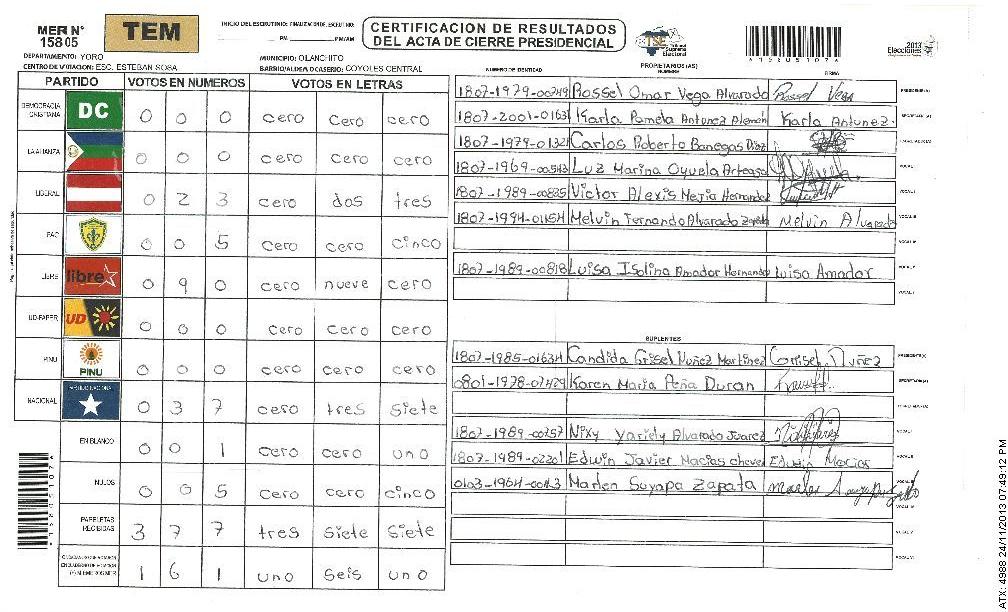 MER N° 15805
TEM
INICIO DEL ESCRUTINIO: FINALIZACION DE ESCRUTINIO:
PM PM/AM
CERTIFICACION DE RESULTADOS
DEL ACTA DE CIERRE PRESIDENCIAL
TSE Tribunal Supremo Electoral
2013
Elecciones
DEPARTAMENTO: YORO
MUNICIPIO: OLANCHITO
CENTRO DE VOTACION: ESC. ESTEBAN SOSA
BARRIO/ALDEA O CASERIO: COYOLES CENTRAL
PARTIDO VOTOS EN NUMEROS VOTOS EN LETRAS
DEMOCRACIA CRISTIANA DC 0 0 0 cero cero cero
LA ALIANZA 0 0 0 cero cero cero
LIBERAL 0 2 3 cero dos tres
PAC 0 0 5 cero cero cinco
LIBRE libre 0 9 0 cero nueve cero
UD-FAPER UD 0 0 0 cero cero cero
PINU PINU 0 0 0 cero cero cero
NACIONAL PARTIDO NACIONAL 0 3 7 cero tres siete
EN BLANCO 0 0 1 cero cero uno
NULOS 0 0 5 cero cero cinco
PAPELETAS RECIBIDAS 3 7 7 tres siete siete
1 6 1 uno seis uno
PROPIETARIOS (AS)
NUMERO DE IDENTIDAD NOMBRE FIRMA
1807-1979-00749 Rossel Omar Vega Alvarado Rossel Vega PRESIDENTE(A)
1807-2001-01631 Karla Pamela Antunez Aleman Karla Antunez. SECRETARIO(A)
1807-1979-01321 Carlos Roberto Banegas Diaz
1807-1969-00543 Luz Marina Oyuela Arteaga VOCAL I
1807-1989-00825 Victor Alexis Mejia Hernandez VOCAL II
1807-1994-01454 Melvin Fernando Alvarado Zapata Melvin Alvarado VOCAL III
VOCAL IV
1807-1989-00818 Luisa Isolina Amador Hernandez Luisa Amador VOCAL V
SUPLENTES
1807-1985-01634 Candida Grisel Nuñez Martinez Grisel Nuñez PRESIDENTE(A)
0801-1978-07429 Karen Maria Peña Duran SECRETARIO(A)
1807-1989-00257 Nixy Yariely Alvarado Juarez VOCAL I
1807-1989-02201 Edwin Javier Macias chever Edwin Macias VOCAL II
0103-1964-00143 Marlen Suyapa Zapata
VOCAL V
VOCAL VI
158051076
ATX: 4988 24/11/2013 07:49:12 PM